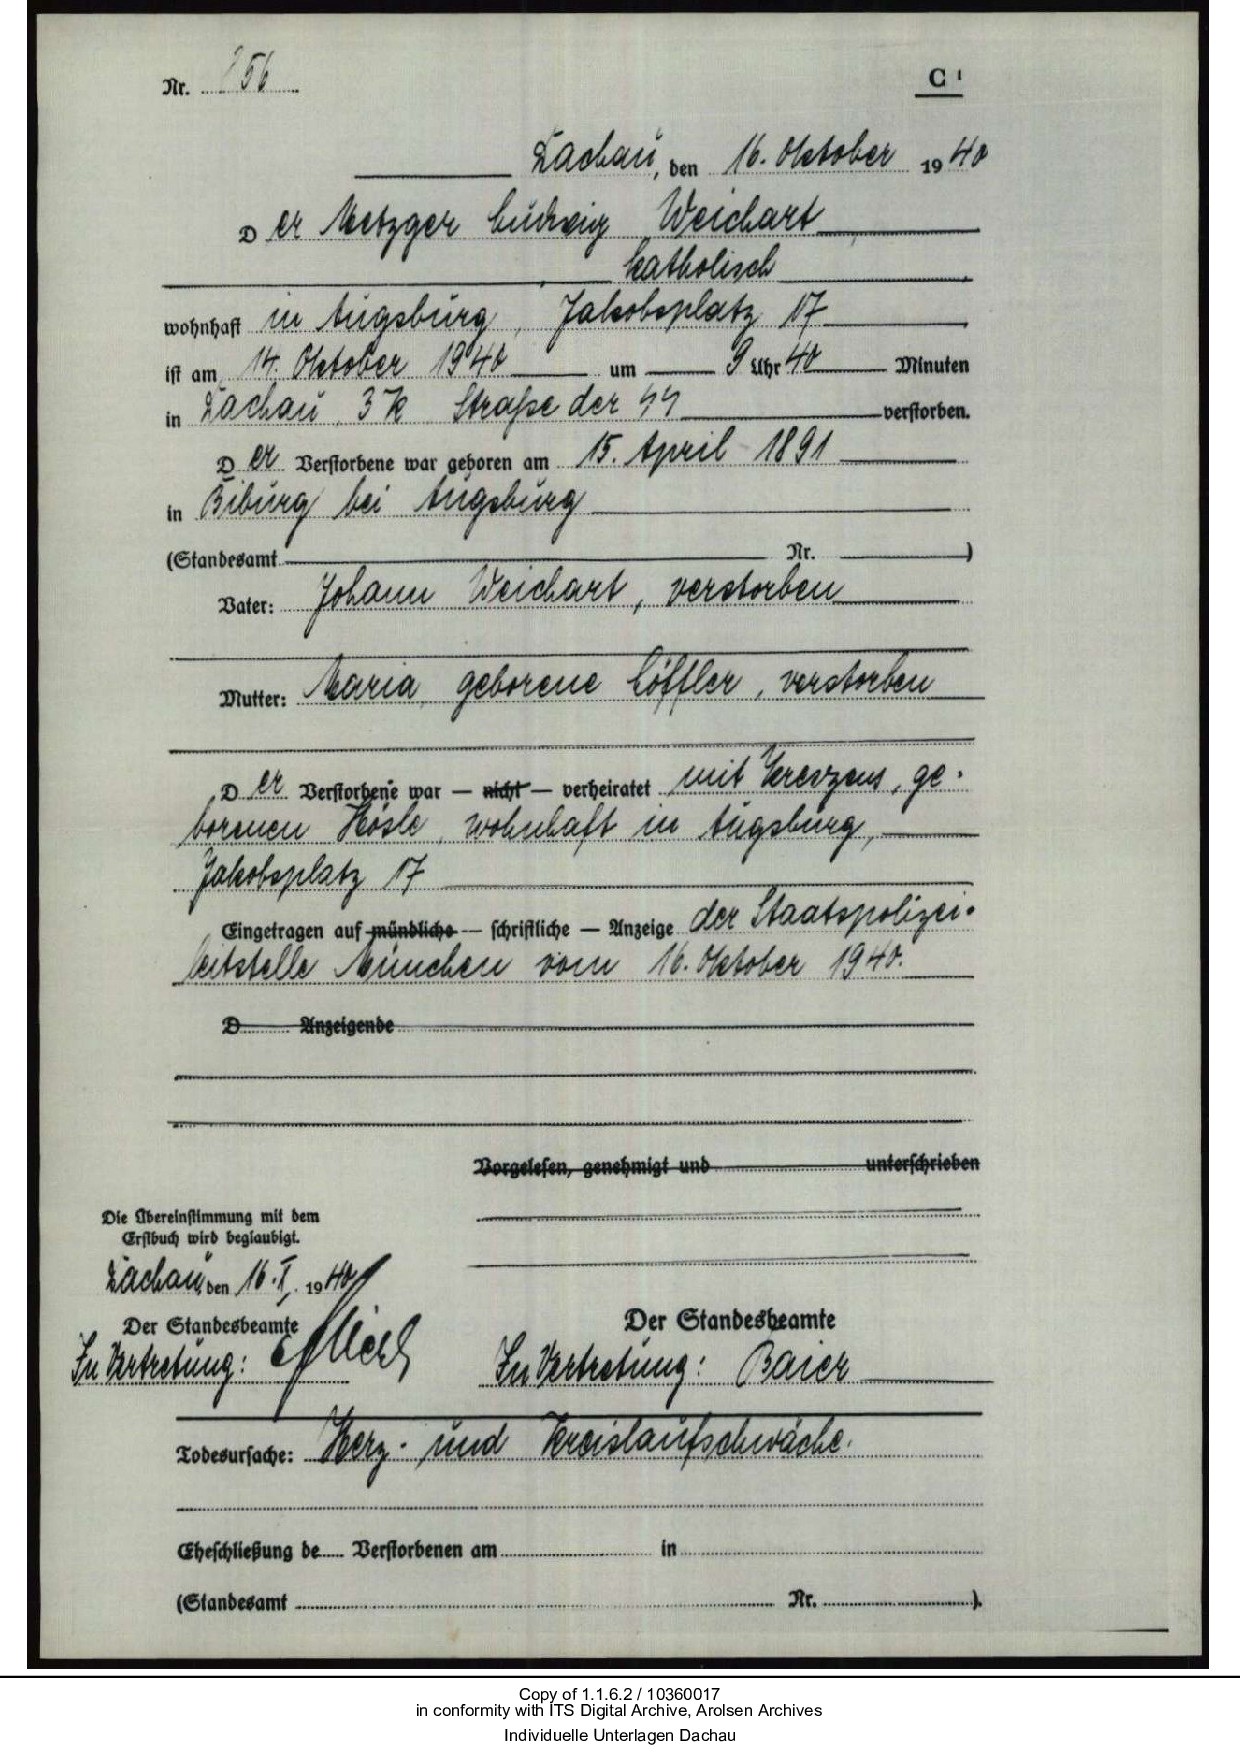 Nr. 56
C¹
Dachau, den 16. Oktober 1940
Der Metzger Ludwig Weichart
katholisch
wohnhaft in Augsburg, Jakobsplatz 17
ist am 14. Oktober 1940 um 9 Uhr 40 Minuten
in Dachau 3 K Straße der SS verstorben.
Der Verstorbene war geboren am 15. April 1891
in Biburg bei Augsburg
(Standesamt Nr. )
Vater: Johann Weichart, verstorben
Mutter: Maria, geborene Löffler, verstorben
Der Verstorbene war — nicht — verheiratet mit Kreszens, ge-
borenen Hösle, wohnhaft in Augsburg,
Jakobsplatz 17
Eingetragen auf mündliche — schriftliche — Anzeige der Staatspolizei-
leitstelle München vom 16. Oktober 1940.
D Anzeigende
Vorgelesen, genehmigt und unterschrieben
Die Übereinstimmung mit dem
Erstbuch wird beglaubigt.
Dachau, den 16. X. 1940
Der Standesbeamte
In Vertretung:
Der Standesbeamte
In Vertretung: Baier
Todesursache: Herz- und Kreislaufschwäche.
Eheschließung de Verstorbenen am in
(Standesamt Nr. ).
Copy of 1.1.6.2 / 10360017
in conformity with ITS Digital Archive, Arolsen Archives
Individuelle Unterlagen Dachau